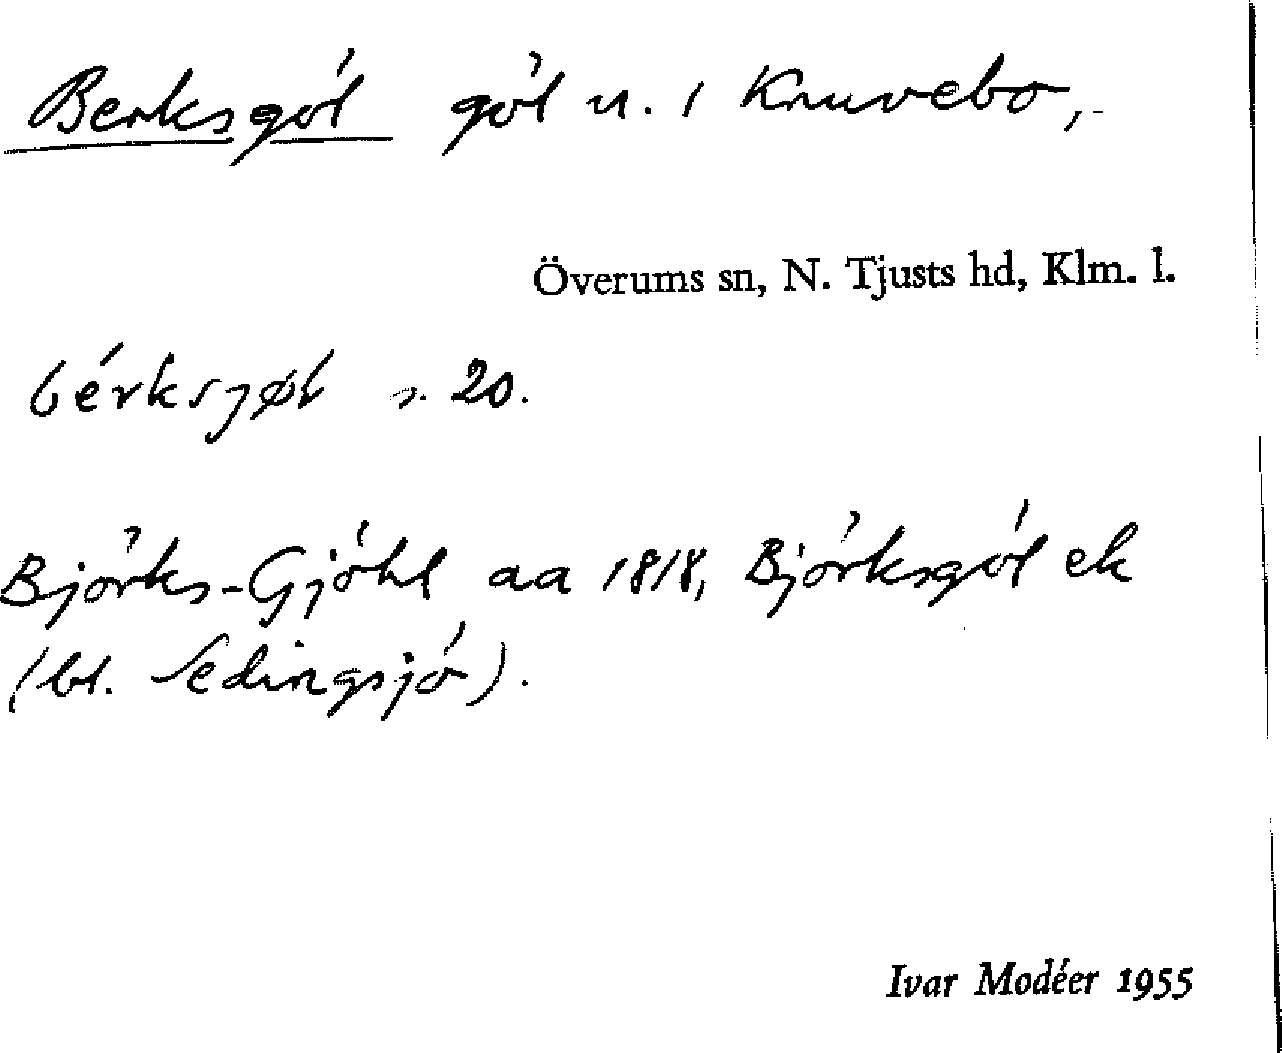 Berksgöl göl n. i Knuvebo,
Överums sn, N. Tjusts hd, Klm. l.
bérksjøl s. 20.
Björks-Gjöhl aa 1818, Björksgöl ek
(bl. Sedingsjö).
Ivar Modéer 1955